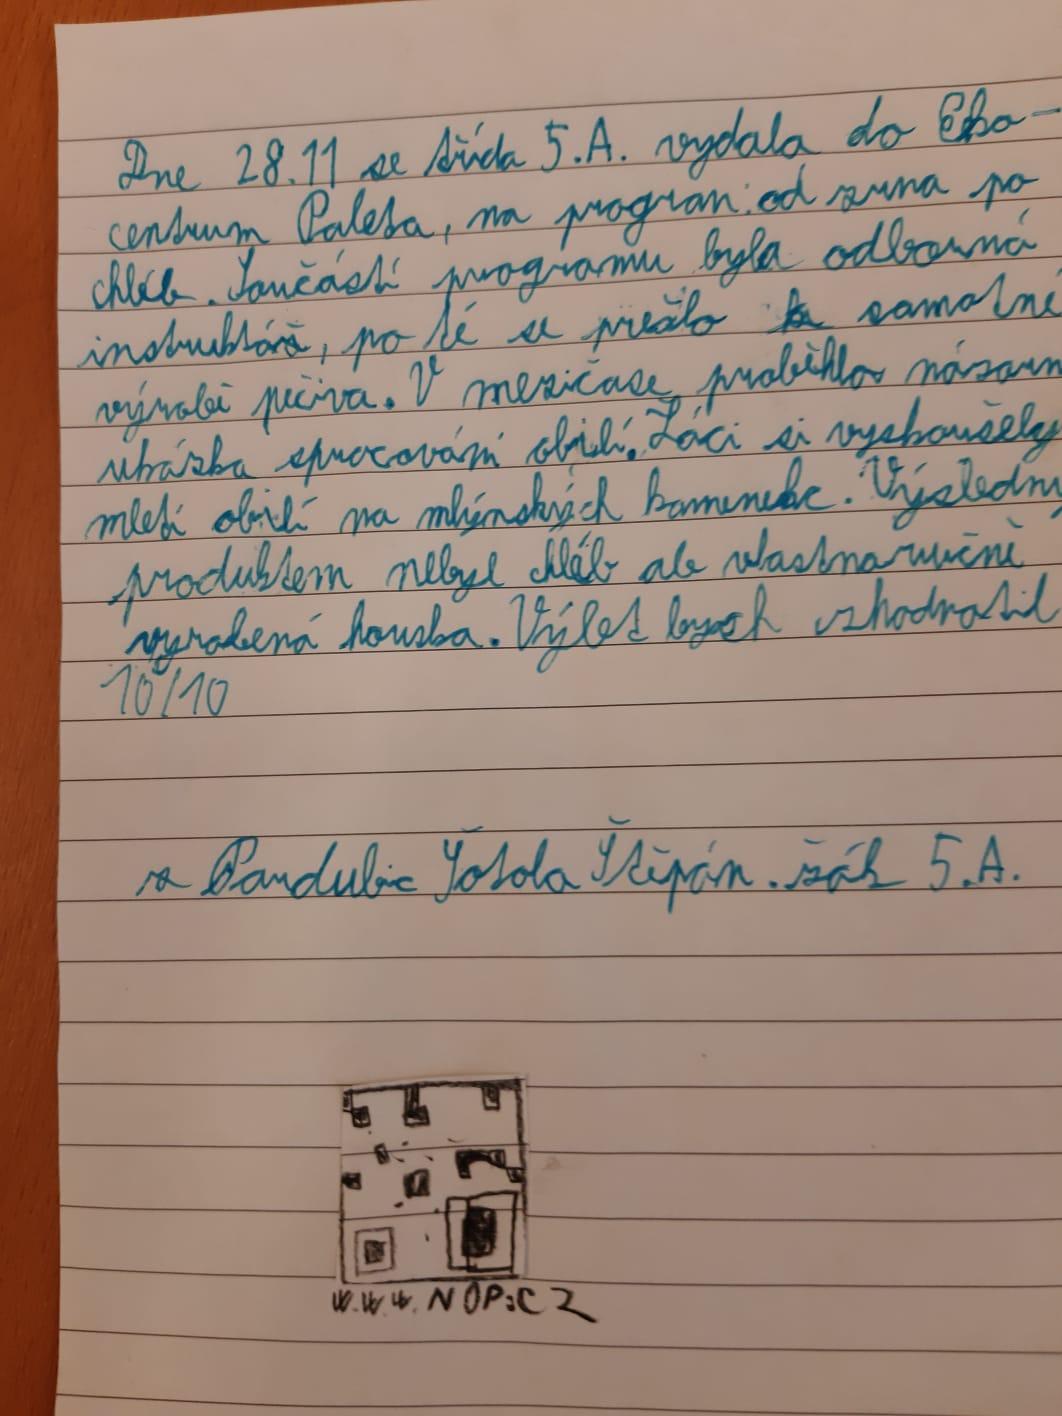 Dne 28.11 se třída 5.A. vydala do Eko-
centrum Paleta, na program: od zrna po
chléb. Součástí programu byla odborná
instruktáž, po té se přešlo k samotné
výrobě pečiva. V mezičase proběhla názorn
ukázka spracování obilí. Žáci si vyskoušely
mletí obilí na mlýnských kamenech. Výsledny
produktem nebyl chléb ale vlastnoručně
vyrobená houska. Výlet bych zhodnotil
10/10
z Pardubic Šotola Štěpán. žák 5.A.
w.w.w. NOP:CZ